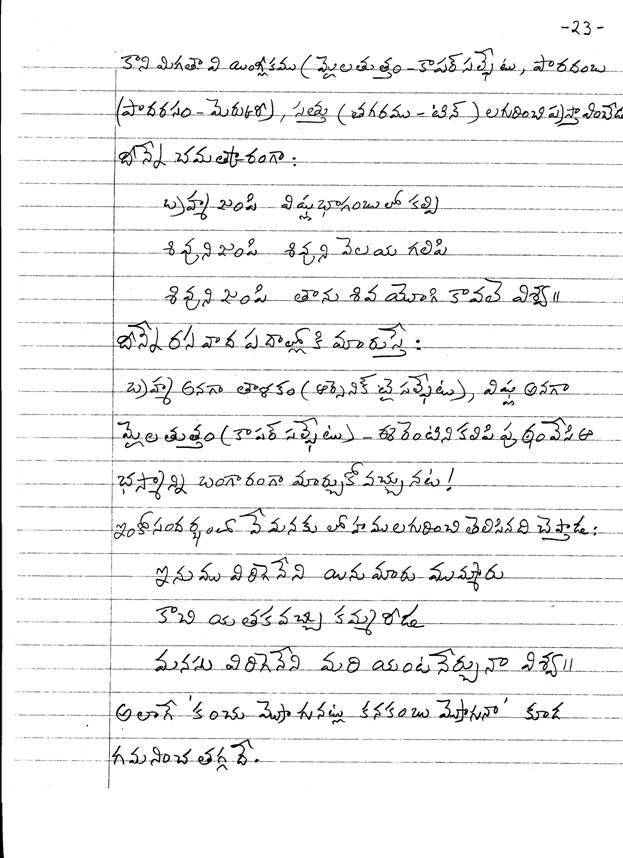 -23-
కాని మిగతా వి యింగ్లీకము (మైలతుత్తం-కాపర్ సల్ఫేటు, పారదంబు
(పాదరసం-మెర్కురీ), సత్తు (తగరము-టిన్) లగురించి ప్రస్తావించేడు
దీన్నే చమత్కారంగా:
బ్రహ్మ జంపి విష్ణుభాగంబులో కల్పి
శివుని జంపి శివుని వెలయ గలిపి
శివుని జంపి తాను శివ యోగి కావలె విశ్వ॥
దీన్నే రస వాద పదాల్లోకి మారుస్తే:
బ్రహ్మ అనగా తాళకం (ఆర్సెనిక్ ట్రై సల్ఫేటు), విష్ణు అనగా
మైలతుత్తం (కాపర్ సల్ఫేటు) - ఈ రెంటిని కలిపి పుఠంవేసి ఆ
భస్మాన్ని బంగారంగా మార్చుకోవచ్చునట!
ఇంకోసందర్భంలో వేమనకు లోహములగురించి తెలిసినది చెప్తాడు:
ఇనుము విరిగెనేని యినుమారు ముమ్మారు
కాచి యతకవచ్చు కమ్మరీడు
మనసు విరిగెనేని మరి యంటనేర్చునా విశ్వ॥
అలాగే 'కంచు మ్రోగునట్లు కనకంబు మ్రోగునా' కూడ
గమనించ తగ్గదే.